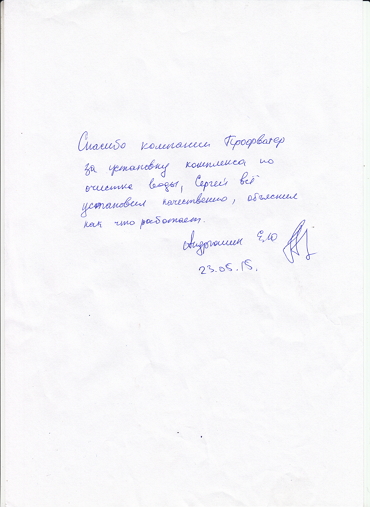 Спасибо компании Профватер
за установку комплекса по
очистке воды, Сергей всё
установил качественно, объяснил
как что работает.
Андрюшин Е.Ю
23.05.15.